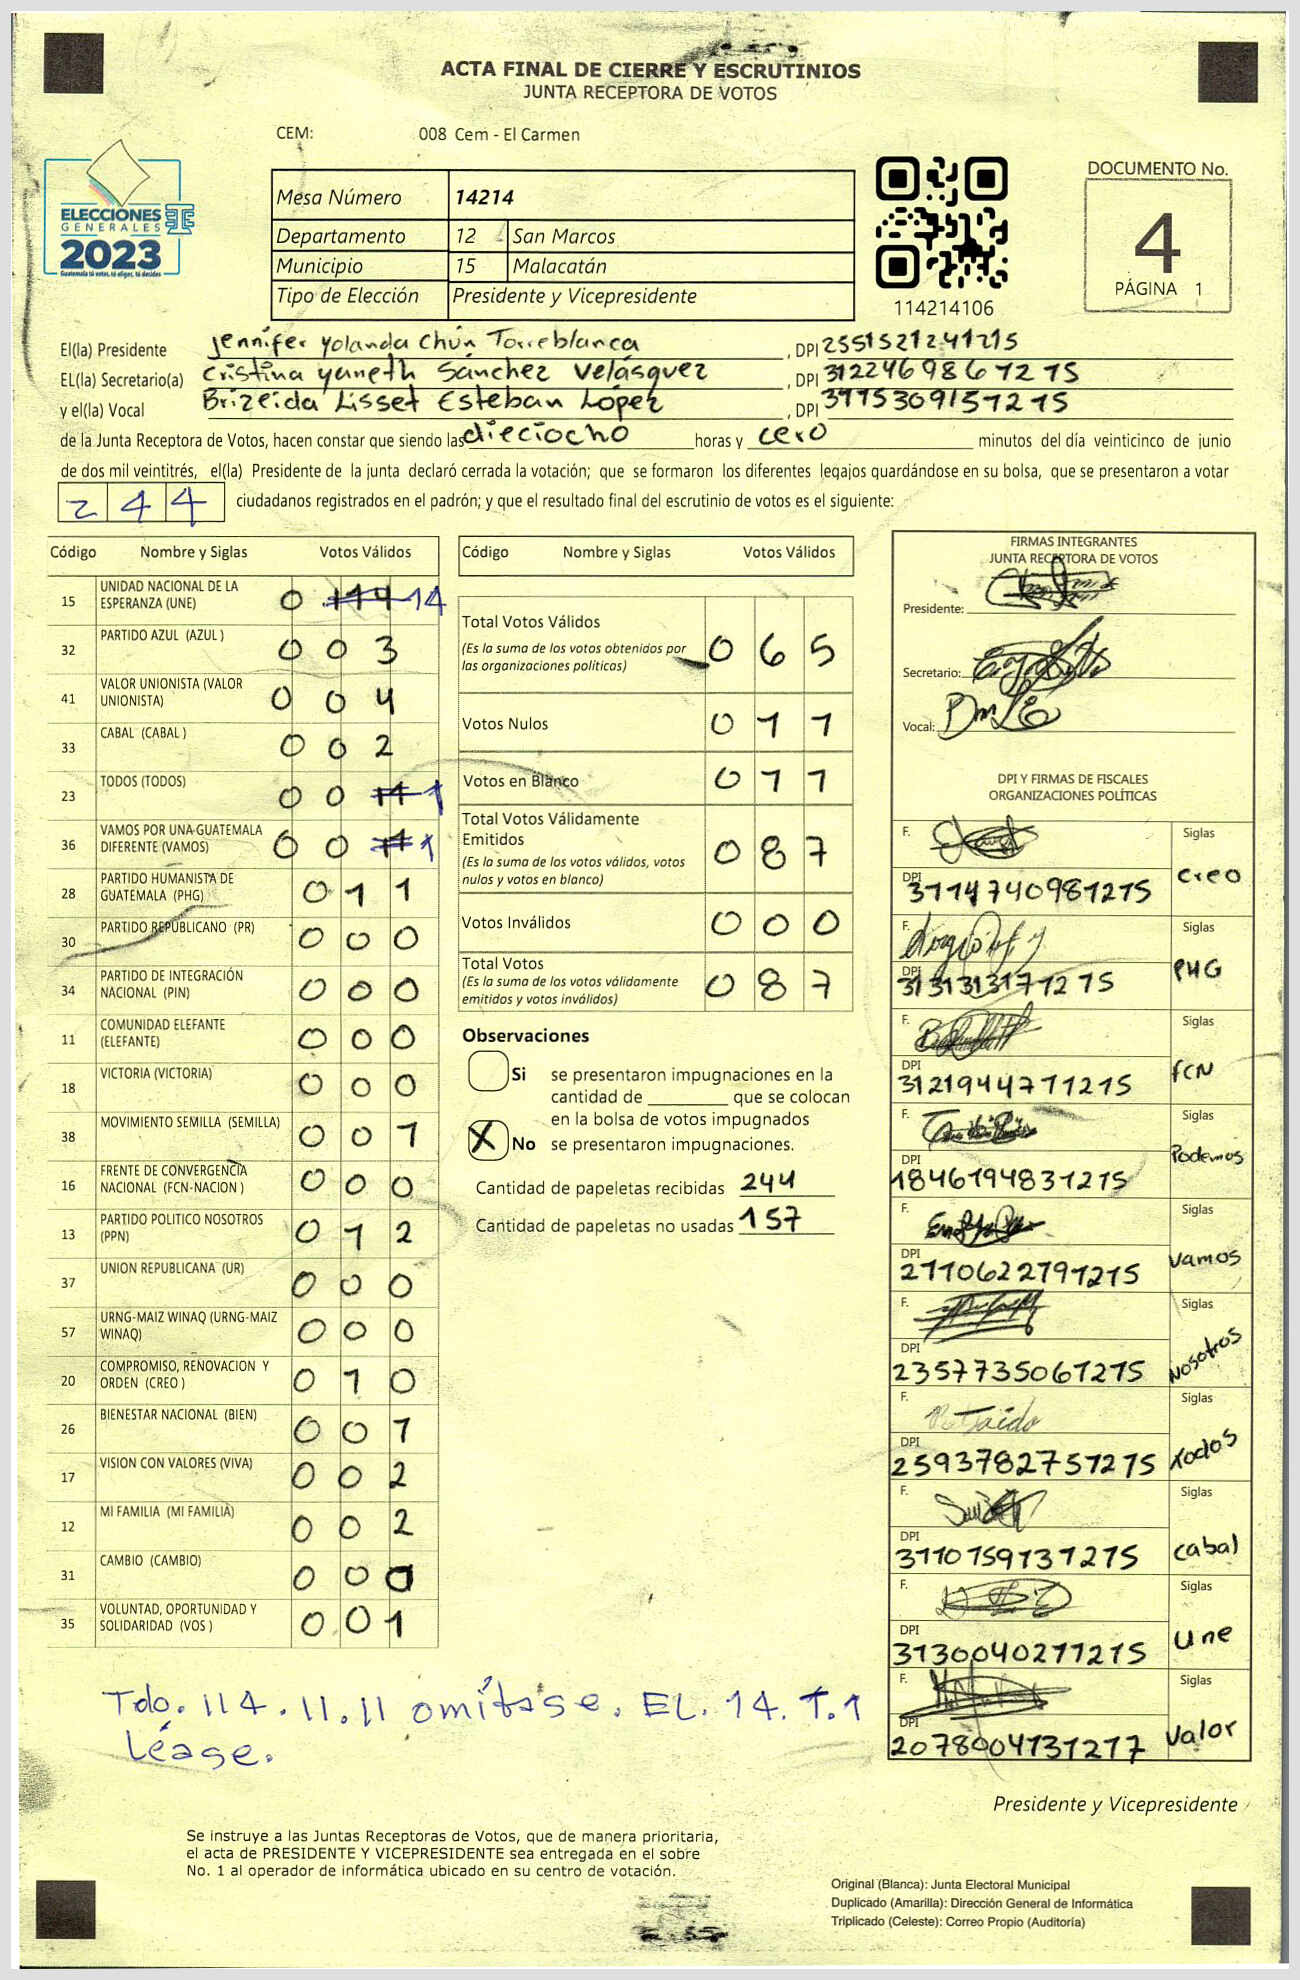 ACTA FINAL DE CIERRE Y ESCRUTINIOS
JUNTA RECEPTORA DE VOTOS
CEM: 008 Cem - El Carmen
ELECCIONES
GENERALES
2023
Guatemala tú votas, tú eliges, tú decides
Mesa Número 14214
Departamento 12 San Marcos
Municipio 15 Malacatán
Tipo de Elección Presidente y Vicepresidente
114214106
DOCUMENTO No.
4
PÁGINA 1
El(la) Presidente Jennifer Yolanda Chún Torreblanca, DPI 2551521241215
EL(la) Secretario(a) Cristina Yaneth Sánchez Velásquez, DPI 3122469861215
y el(la) Vocal Brizeida Lisset Esteban López, DPI 3115309151215
de la Junta Receptora de Votos, hacen constar que siendo las dieciocho horas y cero minutos del día veinticinco de junio
de dos mil veintitrés, el(la) Presidente de la junta declaró cerrada la votación; que se formaron los diferentes legajos guardándose en su bolsa, que se presentaron a votar
244 ciudadanos registrados en el padrón; y que el resultado final del escrutinio de votos es el siguiente:
Código Nombre y Siglas Votos Válidos
15 UNIDAD NACIONAL DE LA ESPERANZA (UNE) 0 114 14
32 PARTIDO AZUL (AZUL ) 0 0 3
41 VALOR UNIONISTA (VALOR UNIONISTA) 0 0 4
33 CABAL (CABAL ) 0 0 2
23 TODOS (TODOS) 0 0 11 1
36 VAMOS POR UNA GUATEMALA DIFERENTE (VAMOS) 0 0 11 1
28 PARTIDO HUMANISTA DE GUATEMALA (PHG) 0 1 1
30 PARTIDO REPUBLICANO (PR) 0 0 0
34 PARTIDO DE INTEGRACIÓN NACIONAL (PIN) 0 0 0
11 COMUNIDAD ELEFANTE (ELEFANTE) 0 0 0
18 VICTORIA (VICTORIA) 0 0 0
38 MOVIMIENTO SEMILLA (SEMILLA) 0 0 1
16 FRENTE DE CONVERGENCIA NACIONAL (FCN-NACION ) 0 0 0
13 PARTIDO POLITICO NOSOTROS (PPN) 0 1 2
37 UNION REPUBLICANA (UR) 0 0 0
57 URNG-MAIZ WINAQ (URNG-MAIZ WINAQ) 0 0 0
20 COMPROMISO, RENOVACION Y ORDEN (CREO ) 0 1 0
26 BIENESTAR NACIONAL (BIEN) 0 0 1
17 VISION CON VALORES (VIVA) 0 0 2
12 MI FAMILIA (MI FAMILIA) 0 0 2
31 CAMBIO (CAMBIO) 0 0 0
35 VOLUNTAD, OPORTUNIDAD Y SOLIDARIDAD (VOS ) 0 0 1
Código Nombre y Siglas Votos Válidos
Total Votos Válidos 0 6 5
(Es la suma de los votos obtenidos por
las organizaciones politicas)
Votos Nulos 0 1 1
Votos en Blanco 0 1 1
Total Votos Válidamente
Emitidos 0 8 7
(Es la suma de los votos válidos, votos
nulos y votos en blanco)
Votos Inválidos 0 0 0
Total Votos 0 8 7
(Es la suma de los votos válidamente
emitidos y votos inválidos)
Observaciones
Si se presentaron impugnaciones en la
cantidad de ________ que se colocan
en la bolsa de votos impugnados
X No se presentaron impugnaciones.
Cantidad de papeletas recibidas 244
Cantidad de papeletas no usadas 157
FIRMAS INTEGRANTES
JUNTA RECEPTORA DE VOTOS
Presidente:
Secretario:
Vocal:
DPI Y FIRMAS DE FISCALES
ORGANIZACIONES POLÍTICAS
F. Siglas
DPI 3114740981215 Creo
F. Siglas
DPI 3131313171215 PHG
F. Siglas
DPI 3121944711215 FCN
F. Siglas
DPI 1846194831215 Podemos
F. Siglas
DPI 2110622791215 Vamos
F. Siglas
DPI 2357735061215 Nosotros
F. Siglas
DPI 2593782751215 Todos
F. Siglas
DPI 3110159131215 Cabal
F. Siglas
DPI 3130040211215 Une
F. Siglas
DPI 2078004131217 Valor
Tdo. 114. 11. 11 omítase. EL. 14. 1. 1
Léase.
Presidente y Vicepresidente
Se instruye a las Juntas Receptoras de Votos, que de manera prioritaria,
el acta de PRESIDENTE Y VICEPRESIDENTE sea entregada en el sobre
No. 1 al operador de informática ubicado en su centro de votación.
Original (Blanca): Junta Electoral Municipal
Duplicado (Amarilla): Dirección General de Informática
Triplicado (Celeste): Correo Propio (Auditoría)